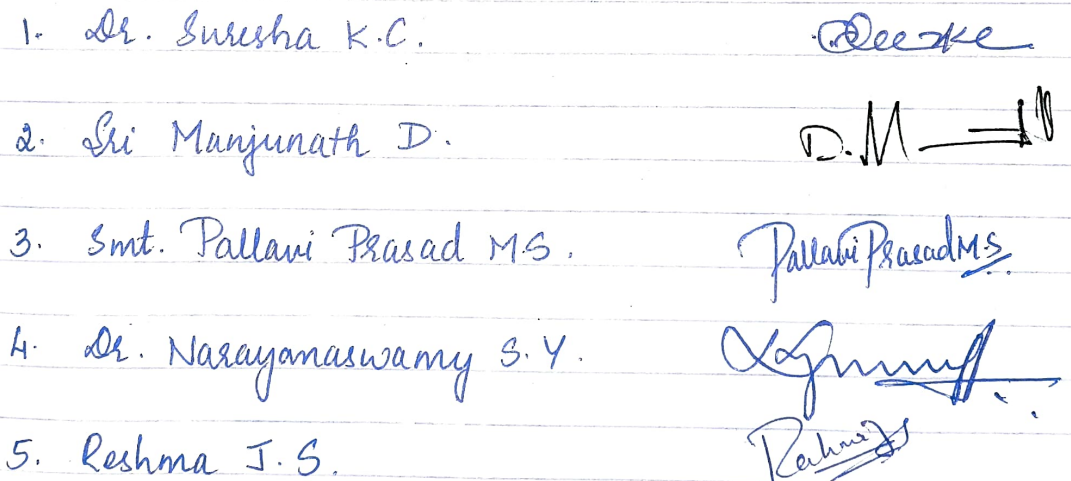 1. Dr. Suresha K.C.
2. Sri Manjunath D. D.M
3. Smt. Pallavi Prasad M.S. Pallavi Prasad M.S.
4. Dr. Narayanaswamy S.Y.
5. Reshma J.S.